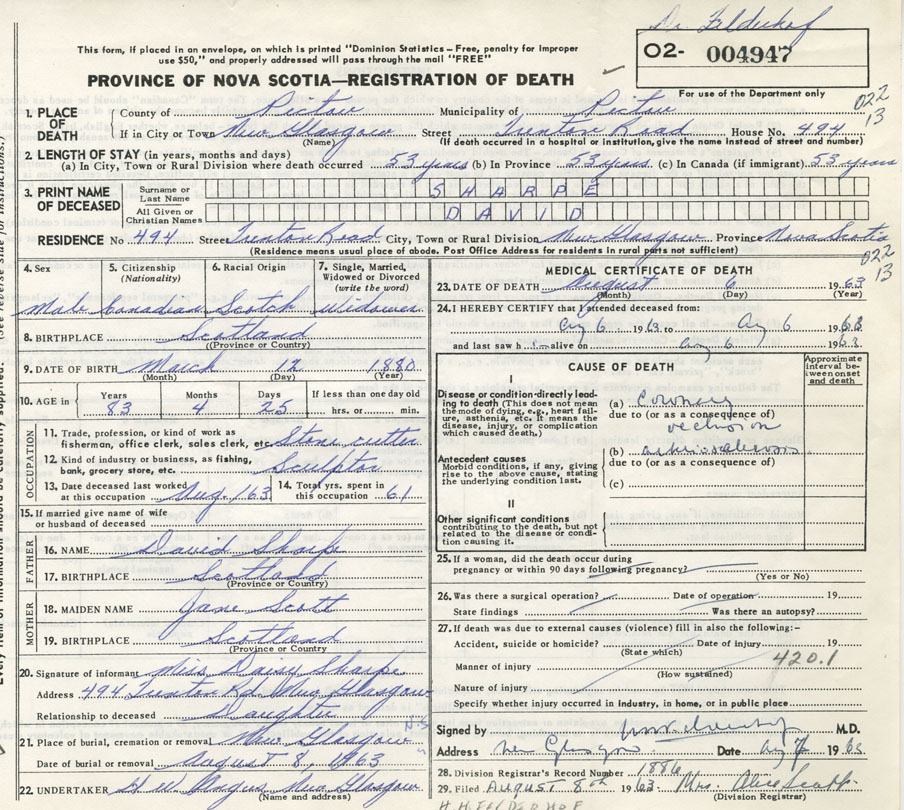 Dr. Felderhof
This form, if placed in an envelope, on which is printed "Dominion Statistics – Free, penalty for improper
use $50," and properly addressed will pass through the mail "FREE"
O2- 004947
PROVINCE OF NOVA SCOTIA—REGISTRATION OF DEATH
For use of the Department only
022
13
1. PLACE OF DEATH
County of Pictou Municipality of Pictou
If in City or Town New Glasgow Street Trenton Road House No. 494
(Name) (If death occurred in a hospital or institution, give the name instead of street and number)
2. LENGTH OF STAY (in years, months and days)
(a) In City, Town or Rural Division where death occurred 53 years (b) In Province 53 years (c) In Canada (if immigrant) 53 years
3. PRINT NAME OF DECEASED
Surname or Last Name SHARPE
All Given or Christian Names DAVID
RESIDENCE No. 494 Street Trenton Road City, Town or Rural Division New Glasgow Province Nova Scotia
(Residence means usual place of abode. Post Office Address for residents in rural parts not sufficient)
022
13
4. Sex 5. Citizenship (Nationality) 6. Racial Origin 7. Single, Married, Widowed or Divorced (write the word)
Male Canadian Scotch Widower
8. BIRTHPLACE Scotland
(Province or Country)
9. DATE OF BIRTH March 12 1880
(Month) (Day) (Year)
10. AGE in Years Months Days If less than one day old
83 4 25 hrs. or min.
OCCUPATION
11. Trade, profession, or kind of work as
fisherman, office clerk, sales clerk, etc. Stone cutter
12. Kind of industry or business, as fishing,
bank, grocery store, etc. Sculptor
13. Date deceased last worked at this occupation Aug. 1 63 14. Total yrs. spent in this occupation 61
15. If married give name of wife
or husband of deceased
FATHER
16. NAME David Sharpe
17. BIRTHPLACE Scotland
(Province or Country)
MOTHER
18. MAIDEN NAME Jane Scott
19. BIRTHPLACE Scotland
(Province or Country)
20. Signature of informant Miss Daisy Sharpe
Address 494 Trenton Rd New Glasgow
Relationship to deceased Daughter
N.S
21. Place of burial, cremation or removal New Glasgow
Date of burial or removal August 8, 1963
22. UNDERTAKER H W Angus New Glasgow
(Name and address)
MEDICAL CERTIFICATE OF DEATH
23. DATE OF DEATH August 6 1963
(Month) (Day) (Year)
24. I HEREBY CERTIFY that I attended deceased from:
Aug 6 1963 to Aug 6 1963
and last saw him alive on Aug 6 1963
CAUSE OF DEATH
Approximate interval between onset and death
I
Disease or condition directly leading to death (This does not mean
the mode of dying, e.g., heart failure, asthenia, etc. It means the
disease, injury, or complication which caused death.)
(a) Coronary
due to (or as a consequence of)
occlusion
Antecedent causes
Morbid conditions, if any, giving
rise to the above cause, stating
the underlying condition last.
(b) arteriosclerosis
due to (or as a consequence of)
(c)
II
Other significant conditions
contributing to the death, but not
related to the disease or condition causing it.
25. If a woman, did the death occur during
pregnancy or within 90 days following pregnancy?
(Yes or No)
26. Was there a surgical operation? Date of operation 19
State findings Was there an autopsy?
27. If death was due to external causes (violence) fill in also the following:–
Accident, suicide or homicide? Date of injury 19
(State which)
420.1
Manner of injury
(How sustained)
Nature of injury
Specify whether injury occurred in Industry, in home, or in public place
Signed by M.D.
Address New Glasgow Date Aug 7 1963
28. Division Registrar's Record Number 1886
29. Filed August 8th 1963 Mrs. Alice Scapp
(Division Registrar)
H. H. FELDERHOF
(See reverse side for instructions.)